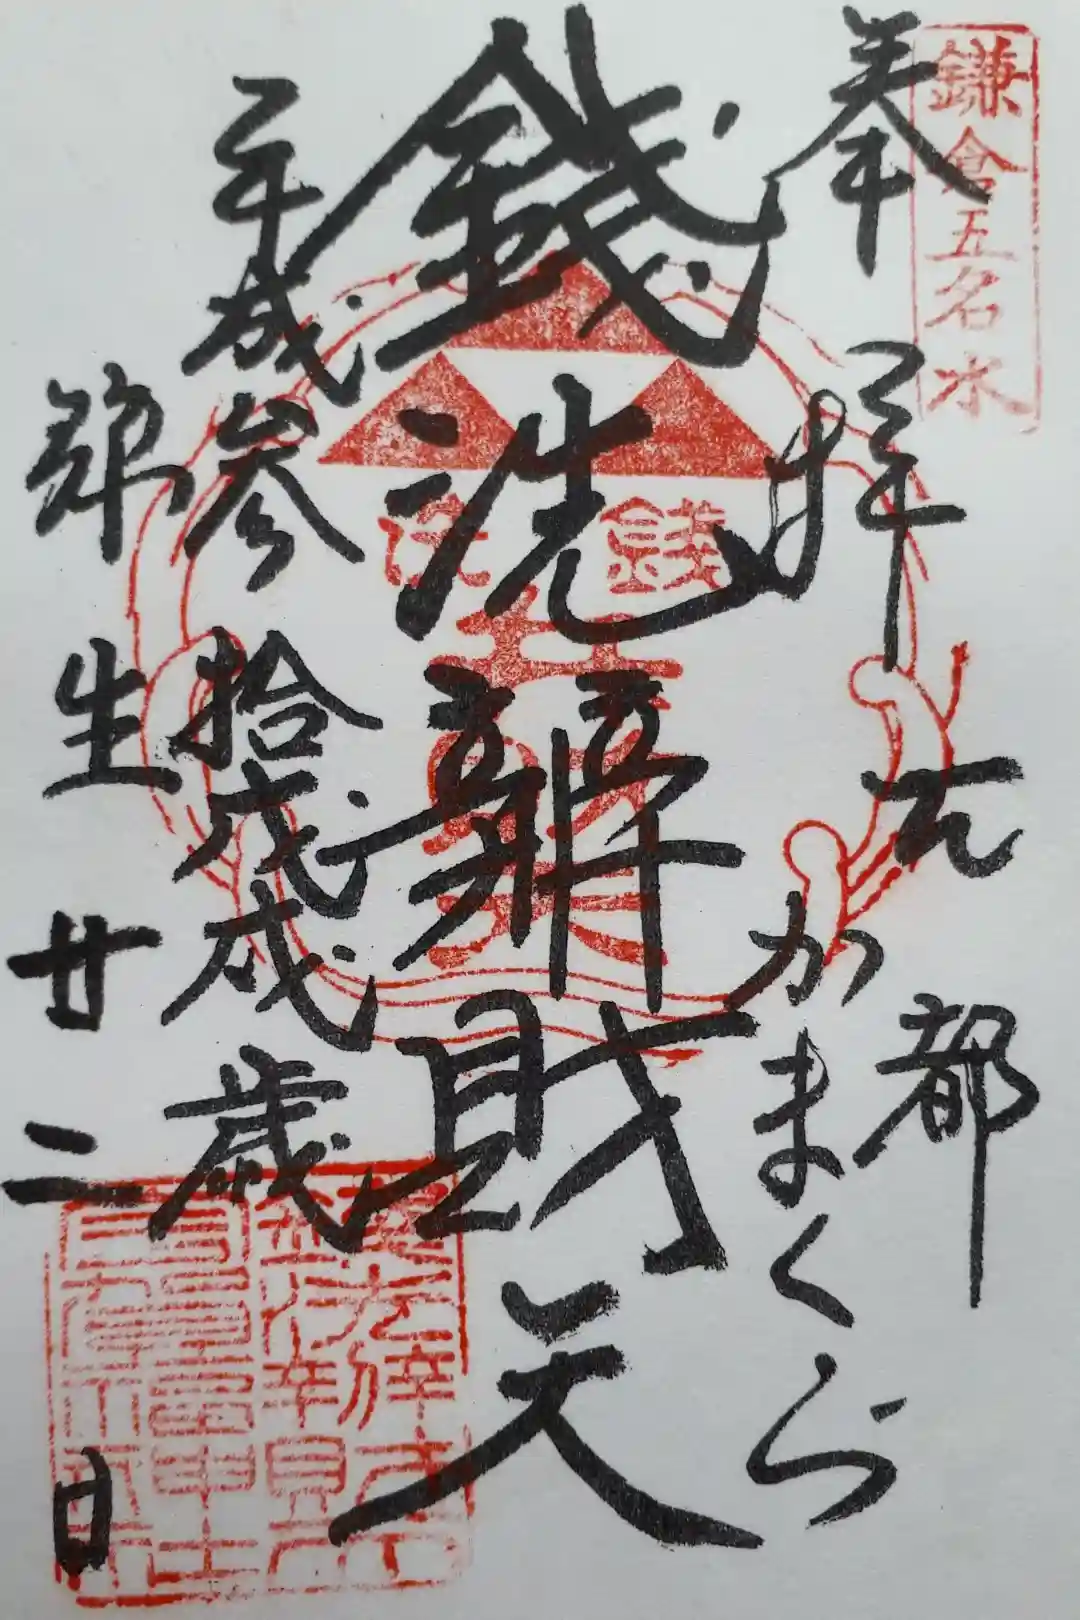 鎌倉五名水
奉拝
古都
かまくら
錢洗辨財天
平成参拾戊戌歳
弥生廿二日
錢洗